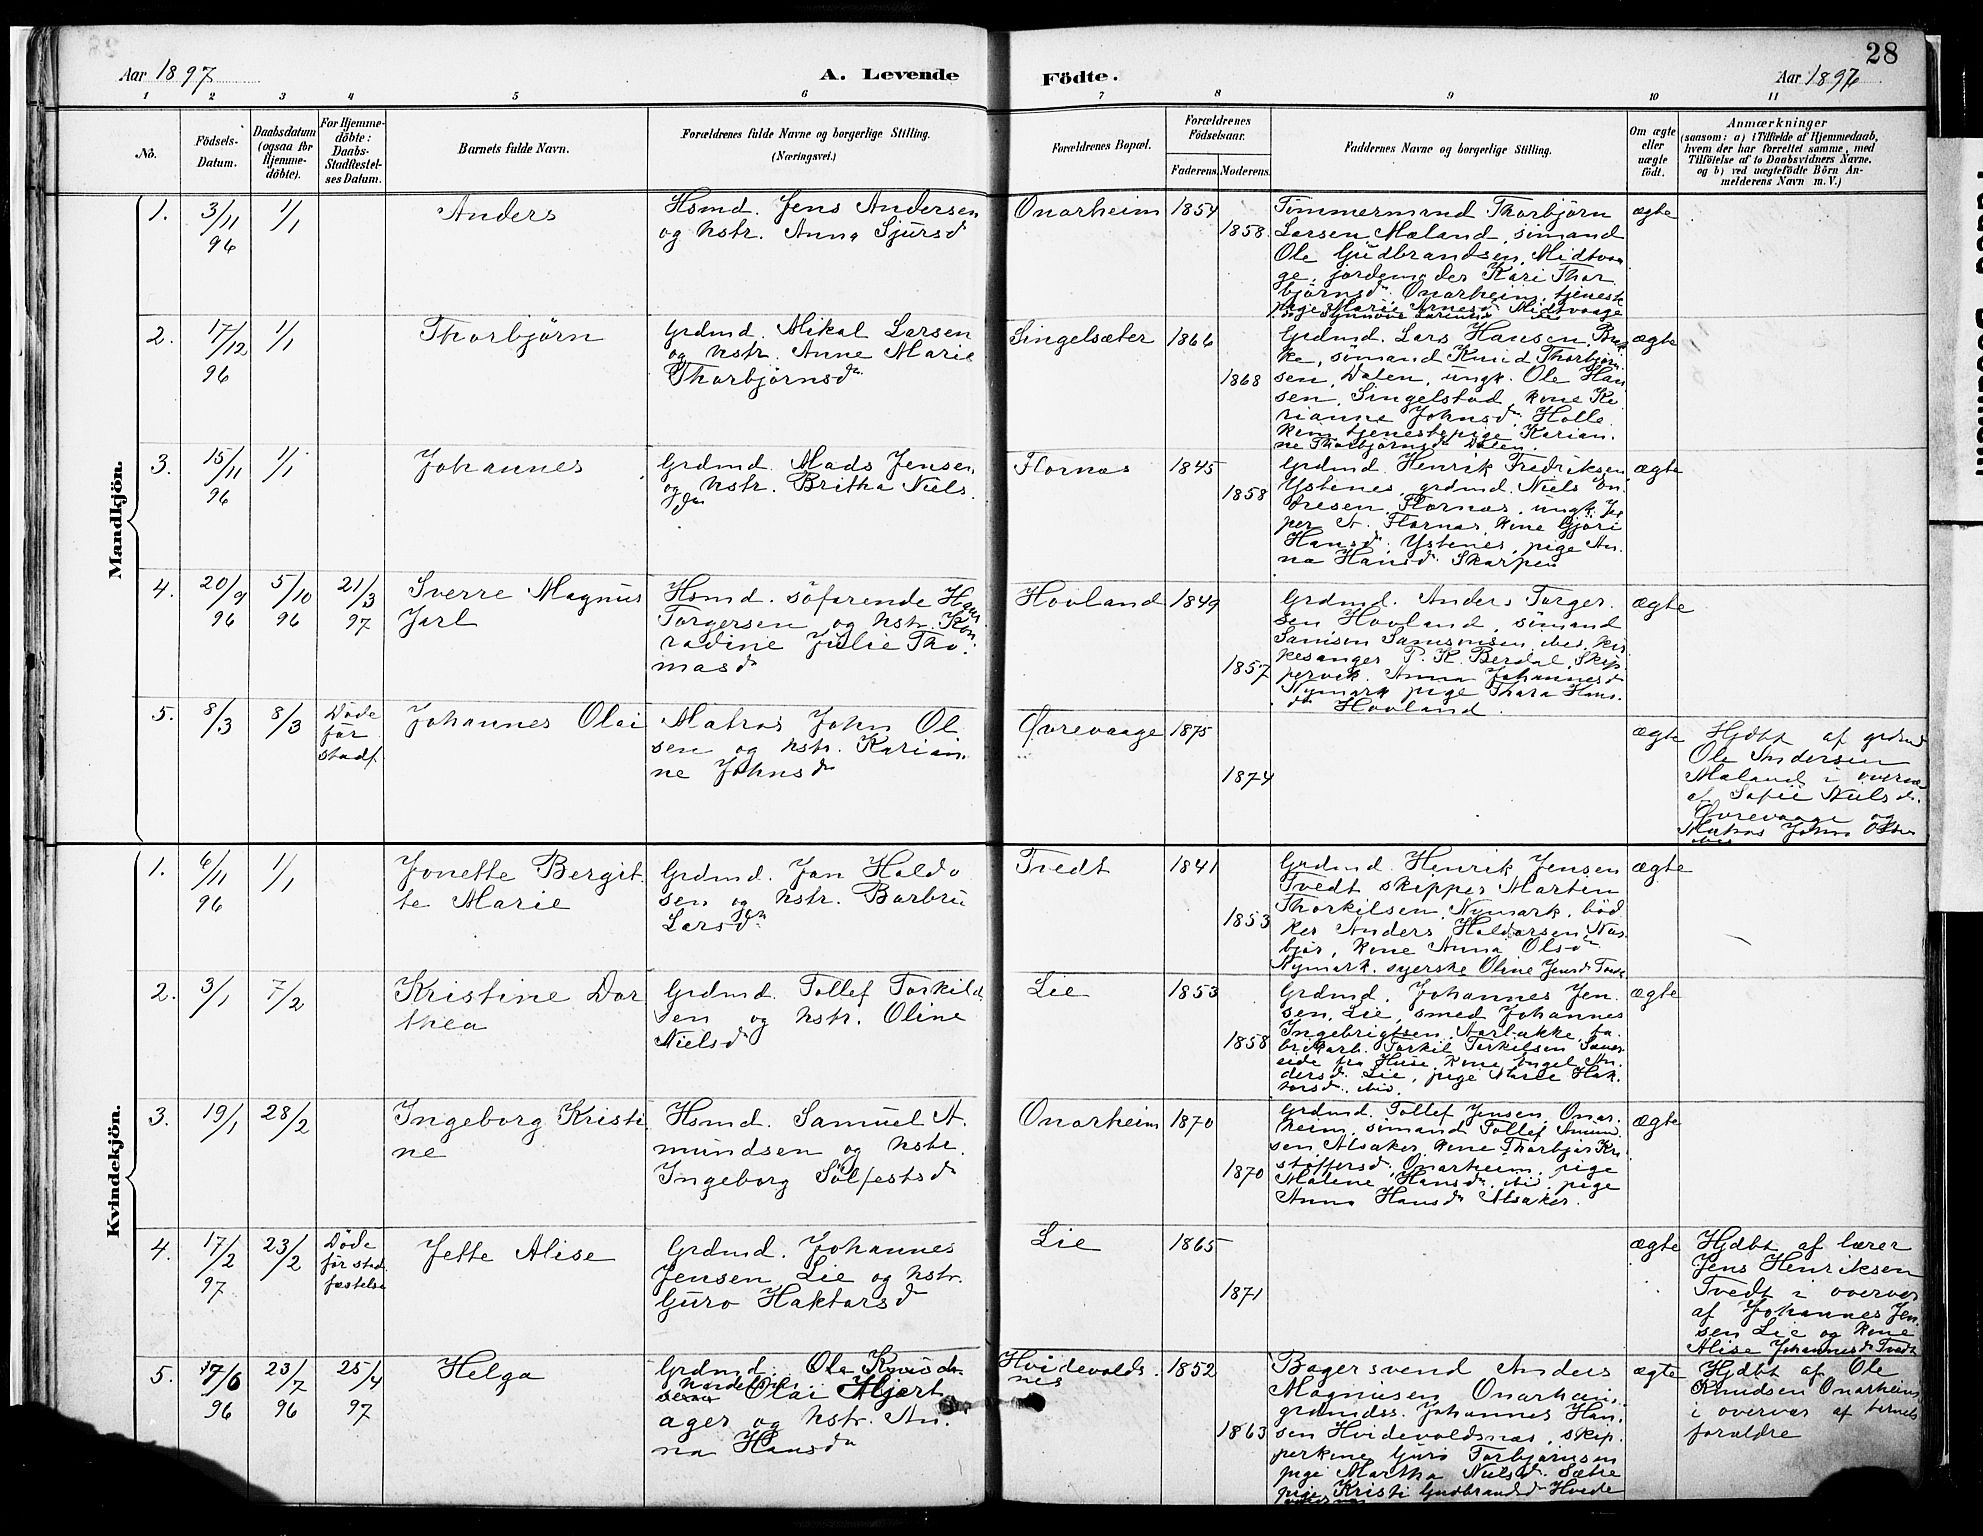 28
Aar 1897
A. Levende
Födte.
Aar 1897
1 2 3 4 5 6 7 8 9 10 11
No.
Födsels-
Datum.
Daabsdatum
(ogsaa for
Hjemme-
döbte).
For Hjemme-
döbte:
Daabs-
Stadfæstel-
ses Datum.
Barnets fulde Navn.
Forældrenes fulde Navne og borgerlige Stilling.
(Næringsvei.)
Forældrenes Bopæl.
Forældrenes
Födselsaar.
Faderens. Moderens.
Faddernes Navne og borgerlige Stilling.
Om ægte
eller
uægte
födt.
Anmærkninger
(saasom: a) i Tilfælde af Hjemmedaab,
hvem der har forrettet samme, med
Tilföielse af to Daabsvidners Navne.
og b) ved uægtefödte Börn An-
melderens Navn m. V.)
Mandkjön.
1.
3/11
96
1/1
Anders
Hsmd. Jens Andersen
og hstr. Anna Sjursd
Onarheim
1854
1858
Tömmermand Thorbjörn
Larsen Mæland, sömand
Ole Gudbrandsen, Midtvaa
ge, jordemoder Kari Thor
björnsd. Onarheim, tjeneste
pige Marie Arnesd Midtvaage
ægte
2.
17/12
96
1/1
Thorbjörn
Grdmd. Mikal Larsen
og hstr. Anne Marie
Thorbjörnsd
Singelsæter
1866
1868
Grdmd. Lars Hansen
ke, sömand Knud Thorbjörn
sen, Dalen, ungk. Ole Han
sen, Singelstad, kone Ke
rianne Johnsd. Holle
kim, tjenestepige Karian
ne Thorbjörnsd Dalen
ægte
3.
15/11
96
1/1
Johannes
Grdmd. Mads Jensen
og hstr. Britha Niels
dr
Flornæs
1845
1858
Grdmd. Henrik Fredriksen
Ystenes, grdmd. Niels En
dresen, Flornæs, ungk. Je
per A. Flornæs, kone Gjöri
Hansd. Ystenes, pige An
na Hansd. Skarpen
ægte
4.
20/9
96
5/10
96
21/3
97
Sverre Magnus
Jarl
Hsmd. söfarende Hans
Torgersen og hstr. Kon
radine Julie Tho
masd
Hovland
1849
1857
Grdmd. Anders Torger
sen Hovland, sömand
Samson Samsonsen, ibid, kir
kesanger P. K. Berdal, Skip
pervik. Anna Johannesd
Nymark, pige Thora Hans
d. Hovland
ægte
5.
8/3
8/3
Döde
för
stadf.
Johannes Olai
Matros John Ol
sen og hstr. Karian
ne Johnsd
Övrevaage
1875
1874
ægte
Hjdbt af grdmd
Ole Andersen
Mæland i overvær
af Sofie Nielsd.
Övrevaage og
Matros John Olsen
ibid
Kvindekjön.
1.
6/11
96
1/1
Jonette Bergit
te Marie
Grdmd. Jan Haldo
sen og hstr. Barbru
Larsd
Tvedt
1841
1853
Grdmd. Henrik Jensen
Tvedt skipper Marten
Thorkilsen, Nymark, böd
ker Anders Haldorsen Næs
björ, kone Anna Olsd
Nymark. syerske Oline Jensd Tvedt
ægte
2.
3/1
7/2
Kristine Dor
thea
Grdmd. Tollef Torkild
sen og hstr. Oline
Nielsd
Lie
1853
1858
Grdmd. Johannes Jen
sen, Lie, smed Johannes
Ingebrigtsen, Aarbakke, fa
brikarb. Torkil Torkilsen Sæver
eide fra Huse, kone Engel An
dersd. Lie, pige Marie Hak
torsd. ibid.
ægte
3.
19/1
28/2
Ingeborg Kristi
ne
Hsmd. Samuel A
mundsen og hstr.
Ingeborg Sölfestsd
Onarheim
1870
1870
Grdmd. Tollef Jensen, Onar
heim, sömand Tollef Amund
sen Alsaker, kone Thorbjör Kri
stoffersd, Onarheim, pige
Malene Hansd. ibid, pige
Anna Hansd Alsaker.
ægte
4.
17/2
97
23/2
Döde
för stad
fæstelse
Jette Alise
Grdmd. Johannes
Jensen Lie og hstr.
Guro Haktorsd
Lie
1865
1871
ægte
Hjdbt af lærer
Jens Henriksen
Tvedt i overvær
af Johannes Jen
sen Lie og kone
Alise Johannesd. Tvedt
5.
17/6
96
23/7
96
25/4
97
Helga
Grdmd. Ole
Olai Hjort
ager og hstr. An
na Hansd
Hvidevolds
nes
1852
1863
Bagersvend Anders
Magnusen Onarheim,
grdmdss. Johannes Han
sen Hvidevoldsnæs, skip
perkone Guro Torbjörnsen
pige Martha Nielsd. Sætre
pige Kristi Gudbrandsd Hvide
ægte
Hjdbt af Ole
Knudsen Onarheim
i overvær af barnets
forældre